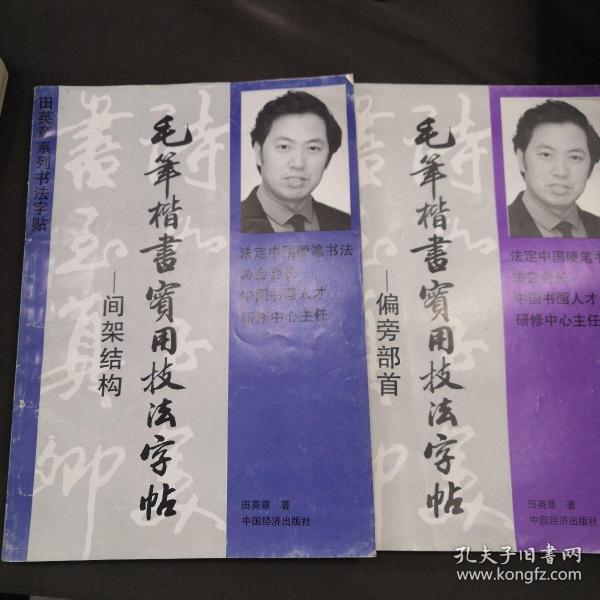 田英章系列书法字贴
毛筆楷書實用技法字帖
—间架结构
法定中国硬笔书法
协会会长
中国书画人才
研修中心主任
田英章 著
中国经济出版社
毛筆楷書實用技法字帖
—偏旁部首
法定中国硬笔书
协会会长
中国书画人才
研修中心主任
田英章 著
中国经济出版社
孔夫子旧书网
www.kongfz.com